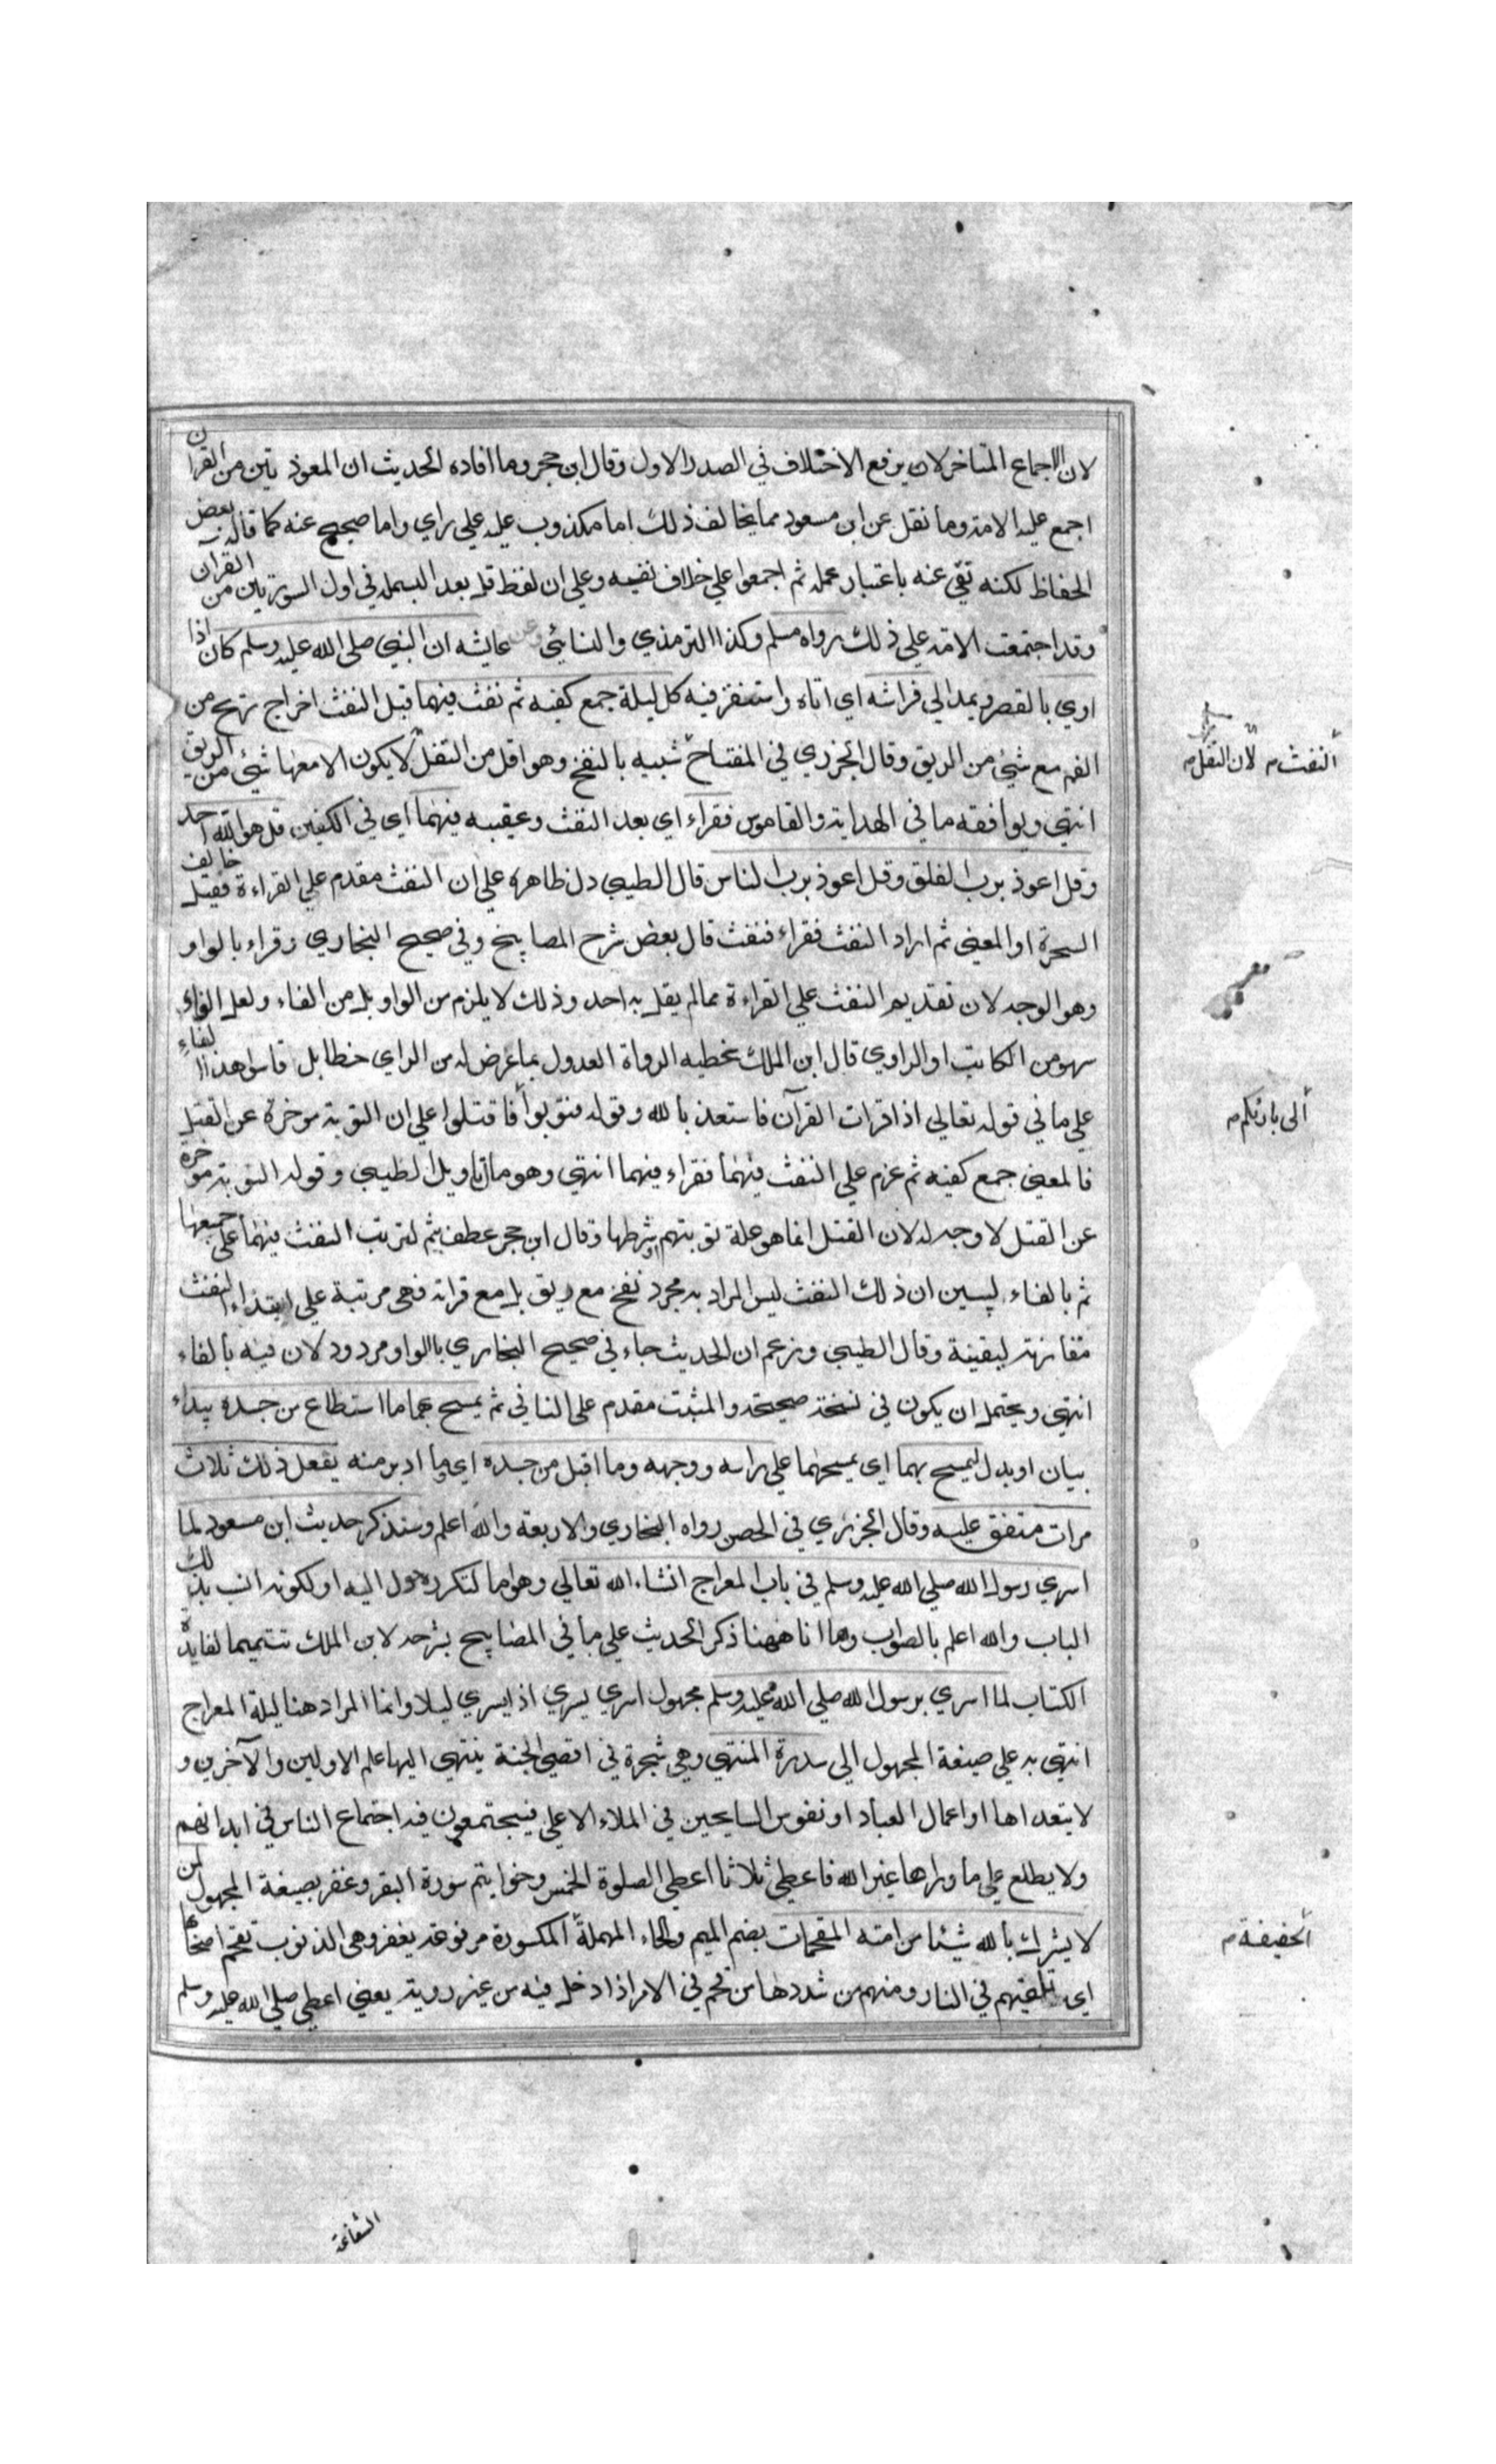 لان الاجماع المتاخر لان يرفع الاختلاف في الصدر الاول وقال ابن حجر وما افاده الحديث ان المعوذ تين من القران
اجمع عليه الامة وما نقل عن ابن مسعود مما يخالف ذلك اما مكذوب عليه علي راي واما صحيح عنه كما قاله بعض
الحفاظ لكنه نقي عنه باعتبار عمله ثم اجمعوا علي خلاف نفيه وعلي ان لفظ قل بعد البسملة في اول السورتين من القرآن
وقد اجتمعت الامة علي ذلك رواه مسلم وكذا الترمذي والنسائي وعن عايشه ان النبي صلي الله عليه وسلم كان اذا
اوي بالقصر ويمد الي فراشه اي اتاه واستقر فيه كل ليلة جمع كفيه ثم نفث فيهما قيل النفث اخراج ريح من
الفم مع شئ من الريق وقال الجزري في المفتاح شبيه بالنفخ وهو اقل من التفل لا يكون الا معها شئ من الريق
انتهي ويوافقه ما في الهداية والقاموس فقراء اي بعد النفث وعقيبه فيهما اي في الكفين قل هو الله احد
وقل اعوذ برب الفلق وقل اعوذ برب الناس قال الطيبي دل ظاهره علي ان النفث مقدم علي القراءة فقيل خالف
السحرة او المعني ثم اراد النفث فقراء فنفث قال بعض شرح المصابيح وفي صحيح البخاري وقراء بالواو
وهو الوجه لان تقديم النفث علي القراءة مما لم يقل به احد وذلك لا يلزم من الواو بل من الفاء ولعل الفاء
سهو من الكاتب او الراوي قال ابن الملك تخطيه الرواة العدول بما عرض له من الراي خطا بل قاسوا هذا الفاء
علي ما في قوله تعالي اذا قرات القرآن فاستعذ بالله وقوله فتوبوا فاقتلوا علي ان التوبة موخرة عن القتل
فالمعني جمع كفيه ثم عزم علي النفث فيهما فقراء فيهما انتهي وهو مال تاويل الطيبي وقوله التوبة موخرة
عن القتل لا وجه له لان القتل انما هو علة توبتهم او شرطها وقال ابن حجر عطف بثم لترتب النفث فيهما علي جمعها
ثم بالفاء ليبين ان ذلك النفث ليس المراد به مجرد نفخ مع ريق بل مع قراته فهي مرتبة علي ابتداء النفث
مقارنة لبقيته وقال الطيبي وزعم ان الحديث جاء في صحيح البخاري بالواو مردود لان فيه بالفاء
انتهي ويحتمل ان يكون في نسخة صحيحة والمثبت مقدم علي النافي ثم يمسح بهما ما استطاع من جسده يبداء
بيان او بدل ليمسح بهما اي يمسحهما علي راسه ووجهه وما اقبل من جسده اي وما ادبر منه يفعل ذلك ثلاث
مرات متفق عليه وقال الجزري في الحصن رواه البخاري والاربعة والله اعلم وسنذكر حديث ابن مسعود لما
اسري رسول الله صلي الله عليه وسلم في باب المعراج انشاء الله تعالي وهو اما لتكرره حول اليه او لكونه انسب بذلك
الباب والله اعلم بالصواب وها انا ههنا ذكر الحديث علي ما في المصابيح بشرحه لابن الملك تتميما لفايدة
الكتاب لما اسري برسول الله صلي الله عليه وسلم مجهول اسري يسري اذا يسري ليلا وانما المراد هنا ليلة المعراج
انتهي به علي صيغة المجهول الي سدرة المنتهي وهي شجرة في اقصي الجنة ينتهي اليها علم الاولين والآخرين و
لا يتعداها او اعمال العباد او نفوس السايحين في الملاء الاعلي فيجتمعون فيه اجتماع الناس في ابدانهم
ولا يطلع علي ما وراها غير الله فاعطي ثلاثا اعطي الصلوة الخمس وخواتيم سورة البقر وغفر بصيغة المجهول لمن
لا يشرك بالله شيئا من امته المقحمات بضم الميم والحاء المهملة المكسورة مرفوعة بغفر وهي الذنوب تقحم اصحابها
اي تلقيهم في النار ومنهم من شددها من قحم في الامر اذا دخل فيه من غير روية يعني اعطي صلي الله عليه وسلم
النفث م لان التفل م
الي بارئكم م
الخفيفة م
الشفاعة